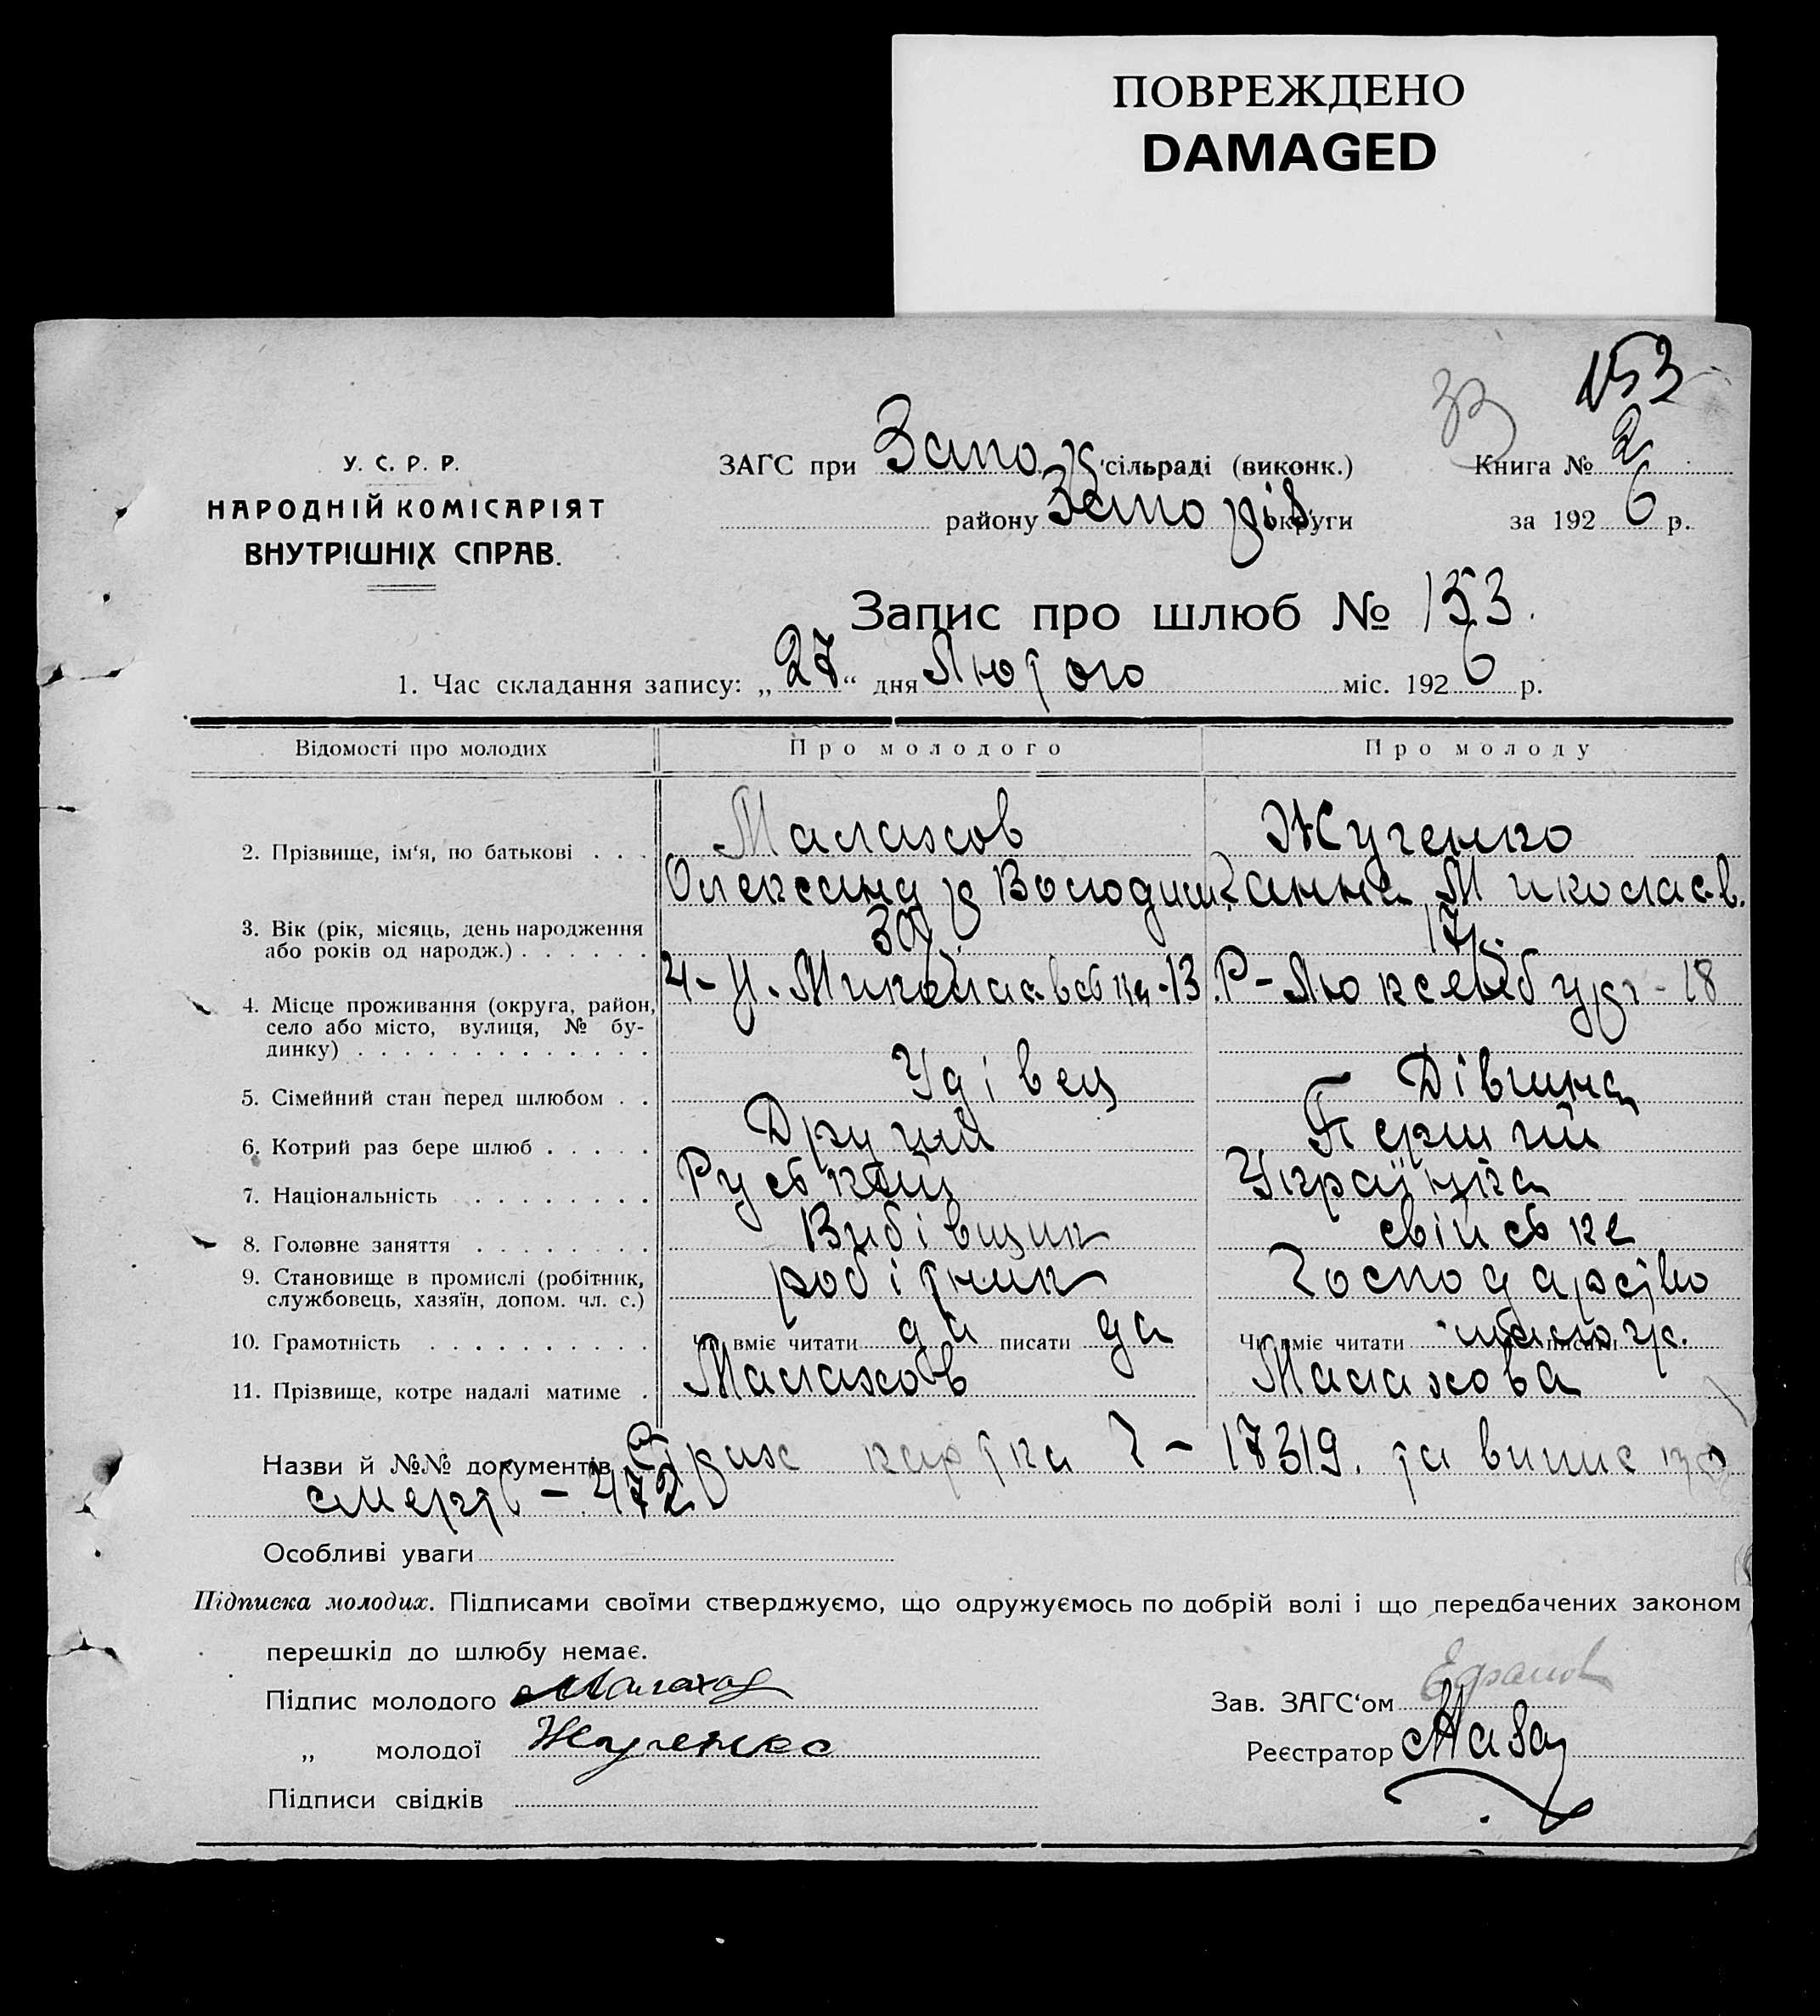 ПОВРЕЖДЕНО
DAMAGED
153
33
У. С. Р. Р.
НАРОДНІЙ КОМІСАРІЯТ
ВНУТРІШНІХ СПРАВ.
ЗАГС при Запор сільраді (виконк.) Книга № 2
району Запоріз. округи за 1926 р.
Запис про шлюб № 153.
1. Час складання запису: „27“ дня Лютого міс. 1926 р.
Відомості про молодих Про молодого Про молоду
2. Прізвище, ім‘я, по батькові . . . Малахов Жученко
Олександр Володим. Ганна Миколаєв.
3. Вік (рік, місяць, день народження
або років од народж.) . . . . . . 30 р. 17 р.
4. Місце проживання (округа, район,
село або місто, вулиця, № бу-
динку) . . . . . . . . . . . . . Миколаєвська-13 Р-Люксембург-18
5. Сімейний стан перед шлюбом . . Удівец Дівчина
6. Котрий раз бере шлюб . . . . . Другий Перший
7. Національність . . . . . . . . Руський Українка
8. Головне заняття . . . . . . . . свійське
9. Становище в промислі (робітник,
службовець, хазяїн, допом. чл. с.) робітник Господарство
10. Грамотність . . . . . . . . . . Чи вміє читати да писати да Чи вміє читати писати
11. Прізвище, котре надалі матиме . Малахов Малахова
Назви й №№ документів Страх картка 17319. та випис про
смерть - 472
Особливі уваги
Підписка молодих. Підписами своїми стверджуємо, що одружуємось по добрій волі і що передбачених законом
перешкід до шлюбу немає.
Підпис молодого Малахов Зав. ЗАГС‘ом
„ молодої Жученко Реєстратор
Підписи свідків